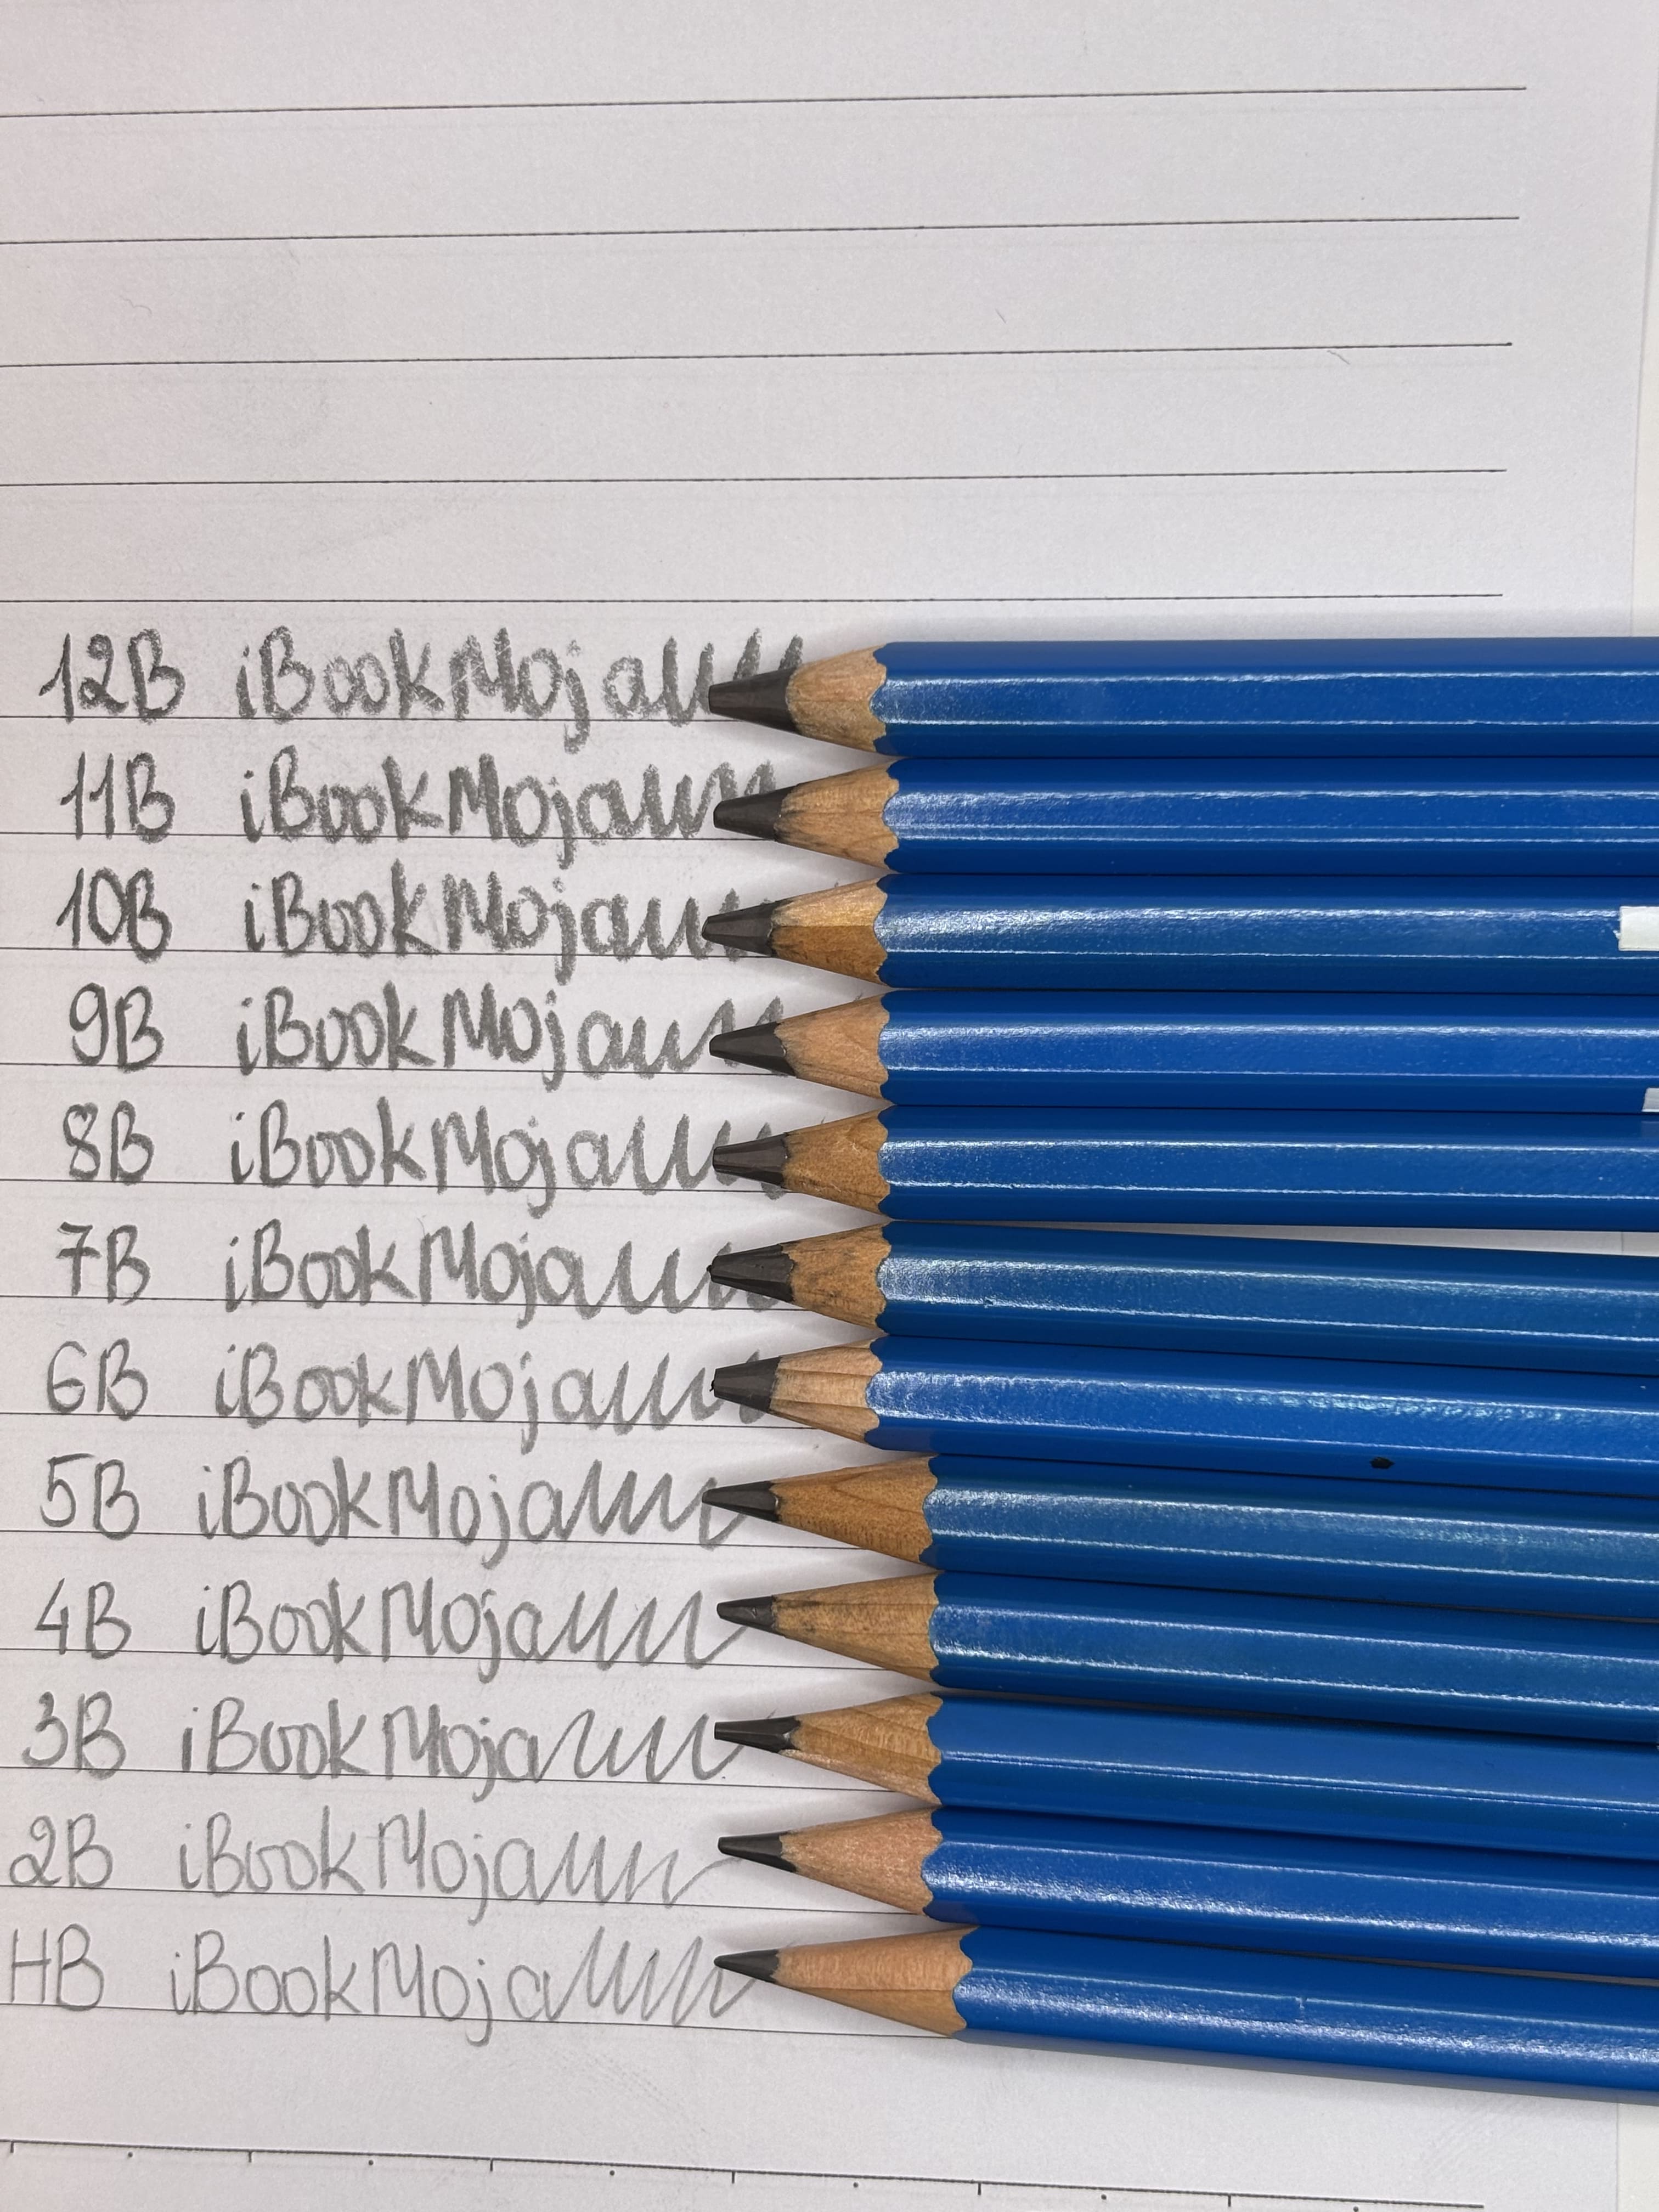 12B iBookMoja
11B iBookMoja
10B iBookMoja
9B iBookMoja
8B iBookMoja
7B iBookMoja
6B iBookMoja
5B iBookMoja
4B iBookMoja
3B iBookMoja
2B iBookMoja
HB iBookMoja